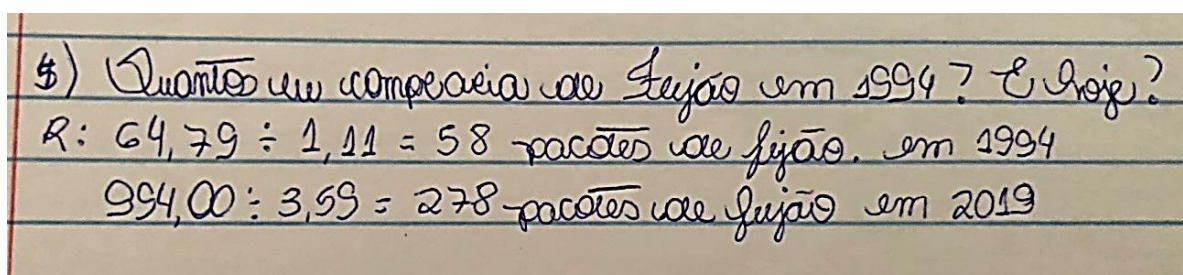 $) Quantos eu compraria de feijão em 1994? E hoje?
R: 64,79 ÷ 1,11 = 58 pacotes de fijão. em 1994
994,00 ÷ 3,59 = 278 pacotes de feijão em 2019